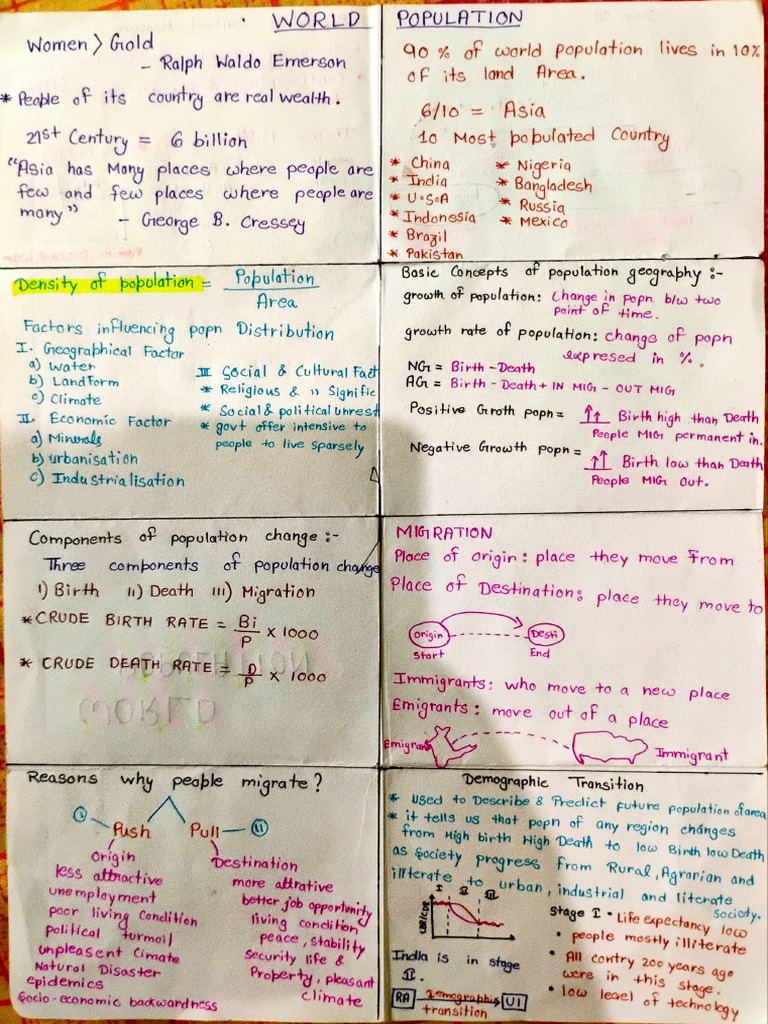 WORLD POPULATION
Women > Gold
- Ralph Waldo Emerson
* People of its country are real wealth.
21st Century = 6 billion
"Asia has Many places where people are
few and few places where people are
many"
- George B. Cressey
90 % of world population lives in 10%
of its land Area.
6/10 = Asia
10 Most populated Country
* China
* India
* U.S.A
* Indonesia
* Brazil
* Pakistan
* Nigeria
* Bangladesh
* Russia
* Mexico
Density of population = Population
Area
Factors influencing popn Distribution
I. Geographical Factor
a) Water
b) Landform
c) Climate
II. Economic Factor
a) Minerals
b) urbanisation
c) Industrialisation
III Social & Cultural Fact
* Religious & " Signific
* Social & political unrest
* govt offer intensive to
people to live sparsely
Basic Concepts of population geography :-
growth of population: Change in popn b/w two
point of time.
growth rate of population: change of popn
expresed in %.
NG = Birth - Death
AG = Birth - Death + IN MIG - OUT MIG
Positive Groth popn = ↑↑ Birth high than Death
People MIG permanent in.
Negative Growth popn = ↑↑ Birth low than Death
People MIG Out.
Components of population change :-
Three components of population change
I) Birth II) Death III) Migration
* CRUDE BIRTH RATE = Bi/P x 1000
* CRUDE DEATH RATE = D/P x 1000
MIGRATION
Place of origin : place they move from
Place of Destination: place they move to
Origin Desti
Start End
Immigrants: who move to a new place
Emigrants : move out of a place
Emigran Immigrant
Reasons why people migrate?
I Push Pull II
Origin
less attractive
unemployment
poor living Condition
political turmoil
unpleasent Cimate
Natural Disaster
epidemics
Socio-economic backwardness
Destination
more attrative
better job opportunity
living condition
peace, stability
Security life &
Property, pleasant
climate
Demographic Transition
* Used to Describe & Predict future population of area
* it tells us that popn of any region changes
from High birth High Death to low Birth low Death
as society progress from Rural, Agrarian and
illterate to urban, industrial and literate
society.
I II III
CBR/CDR
India is in stage
II.
RA Demographic UI
transition
stage I • Life expectancy low
• people mostly illiterate
• All contry 200 years ago
were in this stage.
• low level of technology